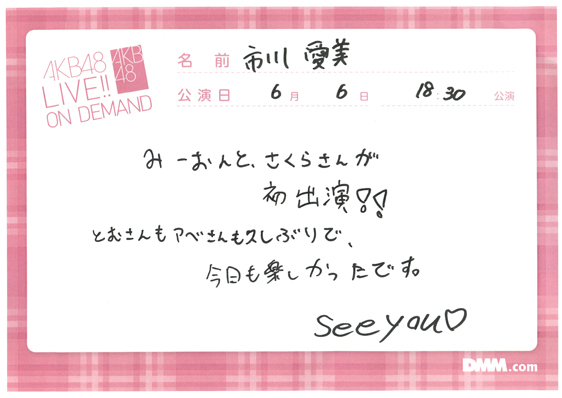 AKB48
LIVE!!
ON DEMAND
AKB
48
名前 市川 愛美
公演日 6月 6日 18:30 公演
みーおんと、さくらさんが
初出演!!
とむさんもアベさんも久しぶりで、
今日も楽しかったです。
see you♡
DMM.com